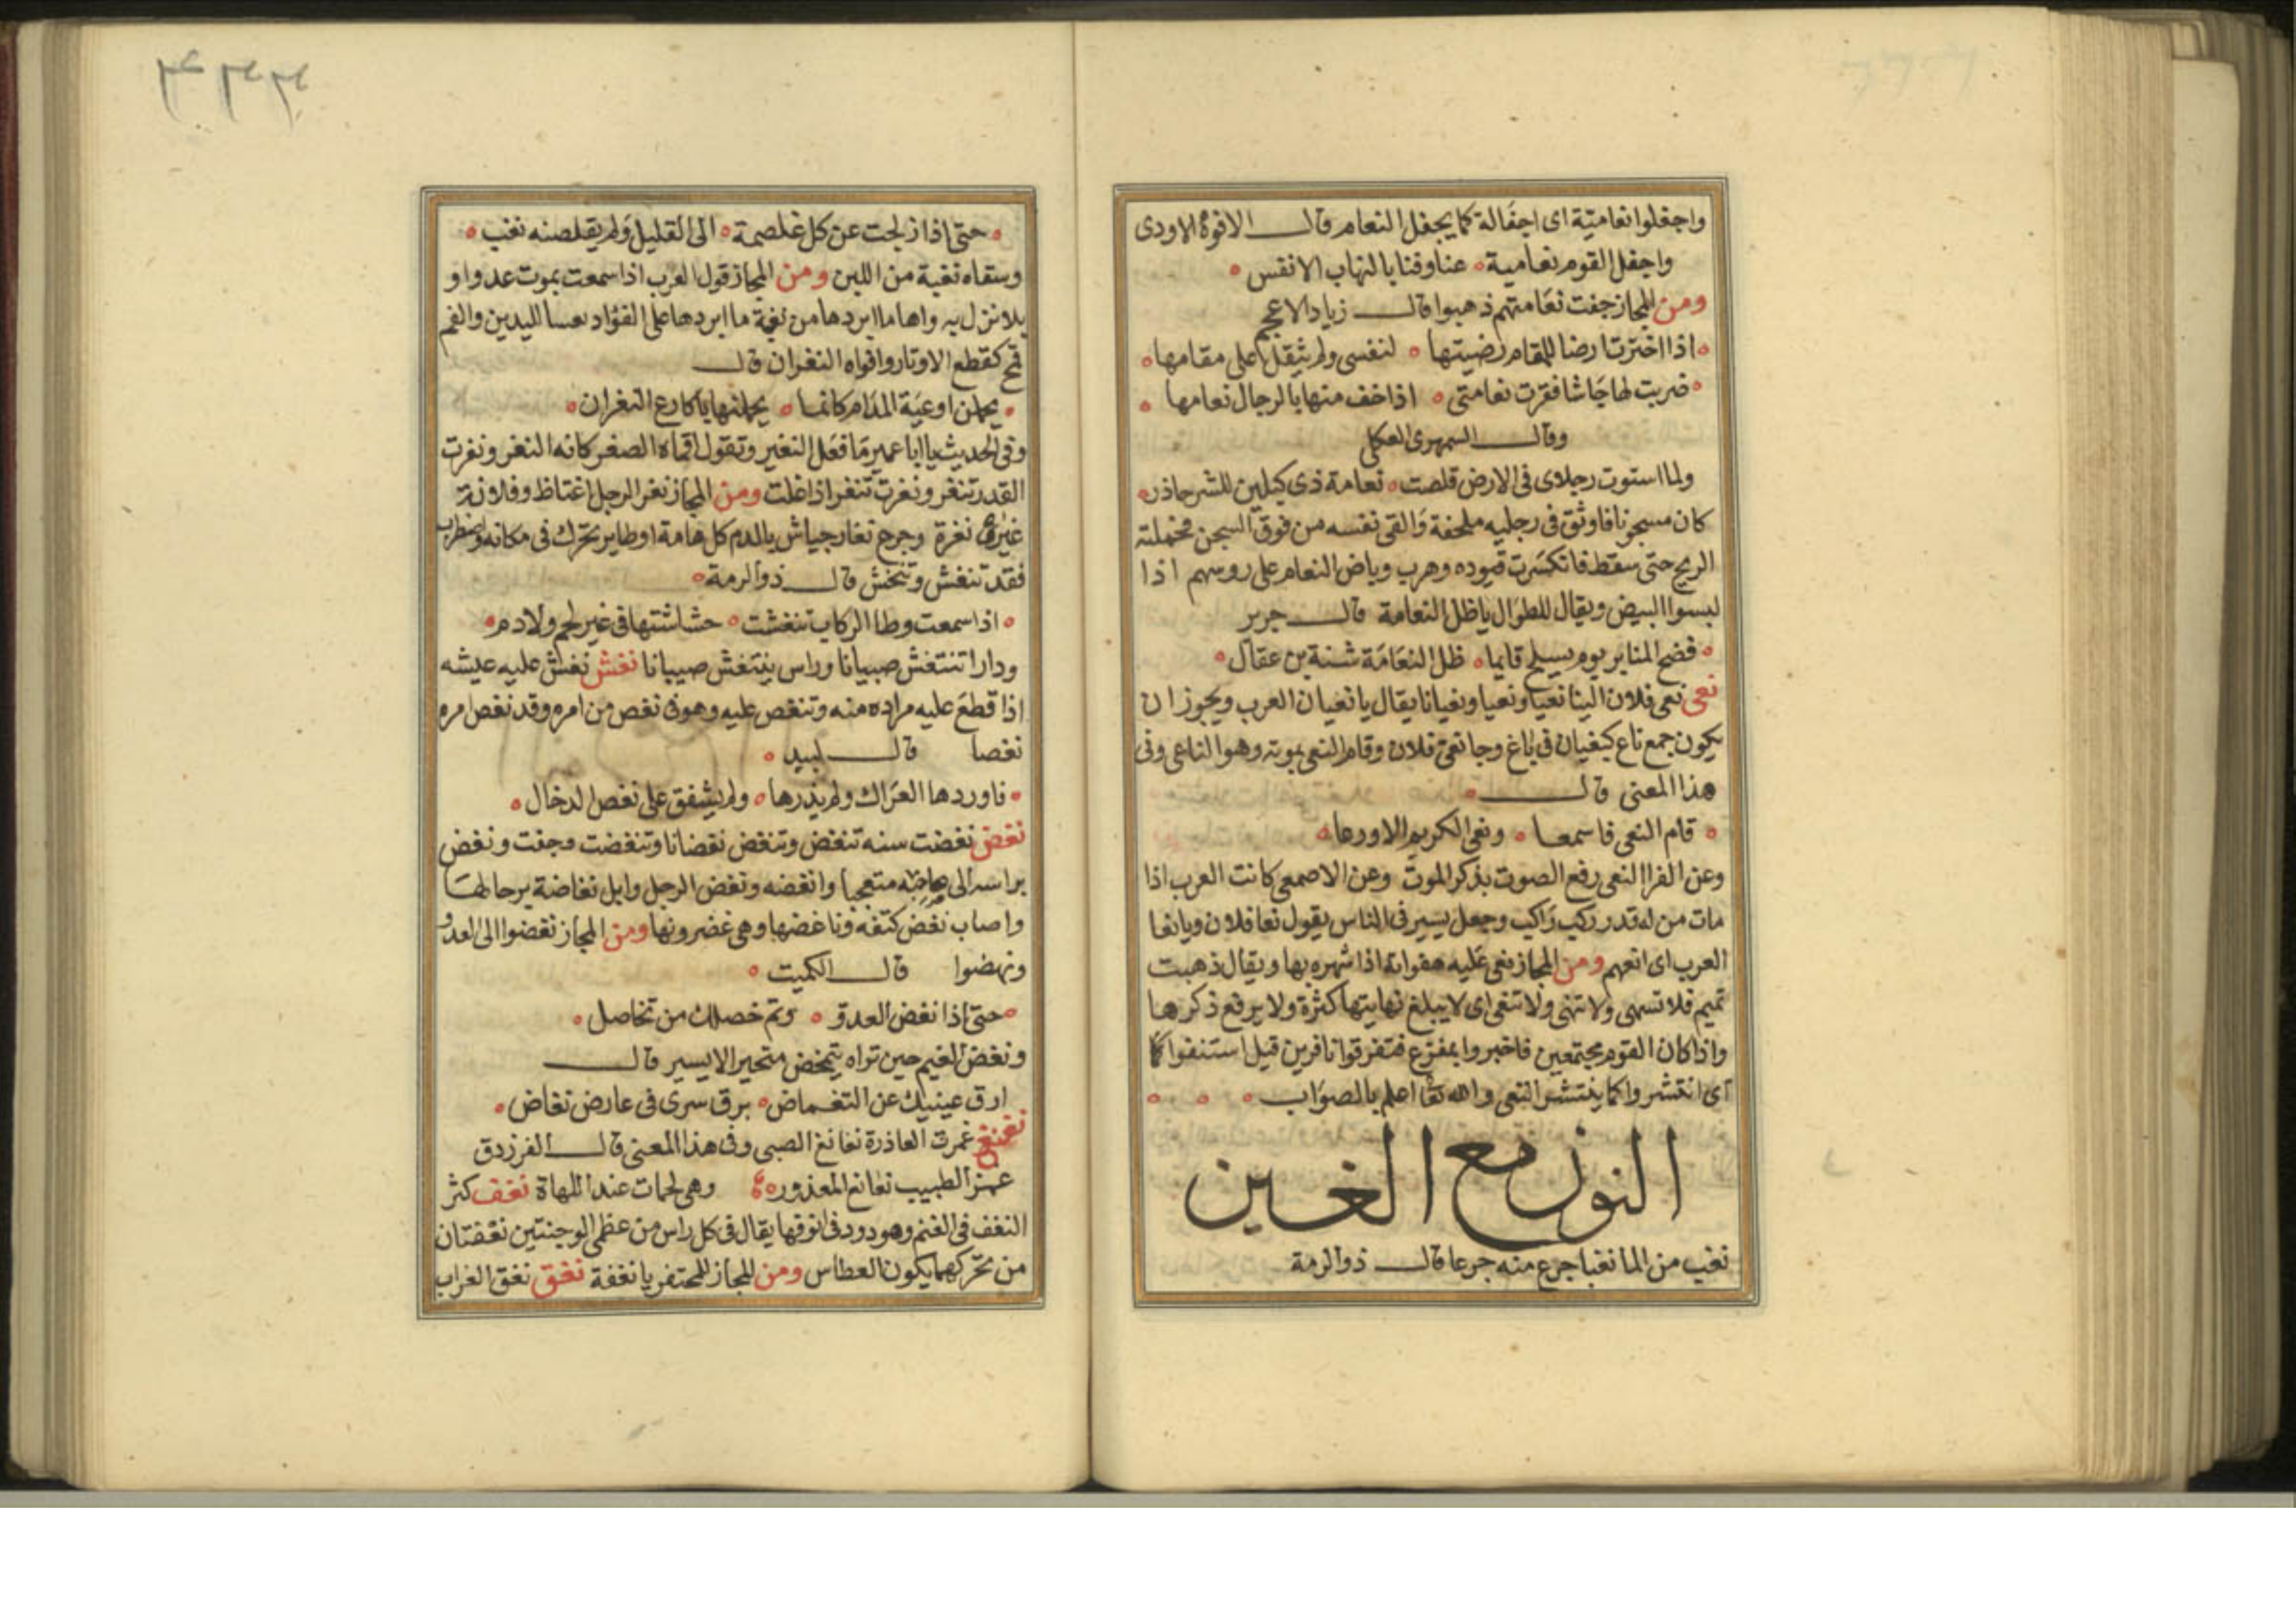 واجفلوا نعامية اى اجفالة كما يجفل النعام قال الافوه الاودى
واجفل القوم نعامية عنا وفنا بالنهاب الانفس
ومن المجاز خفت نعامتهم ذهبوا قال زياد الاعجم
اذا اخترت ارضا للمقام رضيتها لنفسى ولم يثقل على مقامها
ضربت لها جاشا فقرت نعامتى اذا خف منها بالرجال نعامها
وقال السمهرى العكلى
ولما استوت رجلاى فى الارض قلصت نعامة ذى كبلين للشر حاذر
كان مسجونا فاوثق فى رجليه ملحفة والقى نفسه من فوق السجن فحملته
الريح حتى سقط فانكسرت قيوده وهرب وباض النعام على روسهم اذا
لبسوا البيض ويقال للطوال ياظل النعامة قال جرير
فضح المنابر يوم يسلح قايما ظل النعامة شبة بن عقال
نعى نعى فلان الينا نعيا ونعيا ونعيانا يقال يا نعيان العرب ويجوز ان
يكون جمع ناع كبغيان فى باغ وجا نعى فلان وقام النعى بموته وهو الناعى وفى
هذا المعنى قال
قام النعى فاسمعا ونعى الكريم الاورعا
وعن الفرا النعى رفع الصوت بذكر الموت وعن الاصمعى كانت العرب اذا
مات من له قدر ركب راكب وجعل يسير فى الناس يقول نعا فلان ويا نعا
العرب اى انعهم ومن المجاز نعى عليه هفواته اذا شهره بها ويقال ذهبت
تميم فلا تسهى ولا تنهى ولا تنعى اى لا يبلغ نهايتها كثرة ولا يرفع ذكرها
واذا كان القوم مجتمعين فاخبروا بمفزع فتفرقوا نافرين قيل استنعوا
اى انتشروا كما ينتشر النعى والله تعا اعلم بالصواب
النون مع الغين
نغب من الما نغبا جرع منه جرعا قال ذو الرمة
حتى اذا زلجت عن كل غلصمة الى الغليل ولم يقصعنه نغب
وسقاه نغبة من اللبن ومن المجاز قول العرب اذا سمعت بموت عدو او
بلا نزل به واها ما ابردها من نغبة ما ابردها على الفؤاد تعسا لليدين والفم
كقطع الاوتار وافواه النغران قال
يحملن اوعية المدام كانما يحملنها باكارع النغران
وفى الحديث يا ابا عمير ما فعل النغير وتقول اقماه الصغر كانه النغر ونغرت
القدر تنغر ونغرت تنغر اذا غلت ومن المجاز نغر الرجل اغتاظ وفلانة
غيرى نغرة وجرح نغار جياش بالدم كل هامة او طاير تحرك فى مكانه واضطرب
فقد تنغش وتنخش قال ذو الرمة
اذا سمعت وطا الركاب تنغشت حشاشتها فى غير لحم ولا دم
ودارا تنتغش صبيانا وراس ينتغش صيبانا نغش نغش عليه عيشه
اذا قطع عليه مراده منه وتنغص عليه وهو فى نغص من امره وقد نغص امره
نغصا قال لبيد
فاوردها العراك ولم يذرها ولم يشفق على نغص الدخال
نغض نغضت سنه تنغض وتنغض نغضانا وتنغضت رجفت ونغض
براسه الى صاحبه متعجبا وانغضه ونغض الرجل وابل نغاضة برحالها
واصاب نغض كتفه وناغضها وهى غضرونها ومن المجاز نغضوا الى العدو
ونهضوا قال الكميت
حتى اذا نغض العدو وتم خصلك من تخاصل
ونغض الغيم حين تراه يتمخض متحيرا لا يسير قال
ارق عينيك عن التغماض برق سرى فى عارض نغاض
نغنغ غمزت العاذرة نغانغ الصبى وفى هذا المعنى قال الفرزدق
غمز الطبيب نغانغ المعذور وهى لحمات عند اللهاة نغف كثر
النغف فى الغنم وهو دود فى انوفها يقال فى كل راس من عظمى الوجنتين نغفتان
من تحركهما يكون العطاس ومن المجاز للمحتقر يا نغفة نغق نغق الغراب